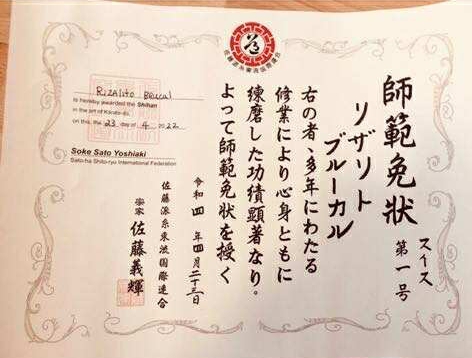 師範免状
スイス 第一号
リザリト
ブルーカル
右の者、多年にわたる
修業により心身ともに
練磨した功績顕著なり。
よって師範免状を授く
令和四年四月二十三日
佐藤派糸東流国際連合
宗家 佐藤義輝
Rizalito Brucal
is hereby awarded the Shihan
in the art of Karate-do,
on this, the 23 day of 4 2022
Soke Sato Yoshiaki
Sato-ha Shito-ryu International Federation